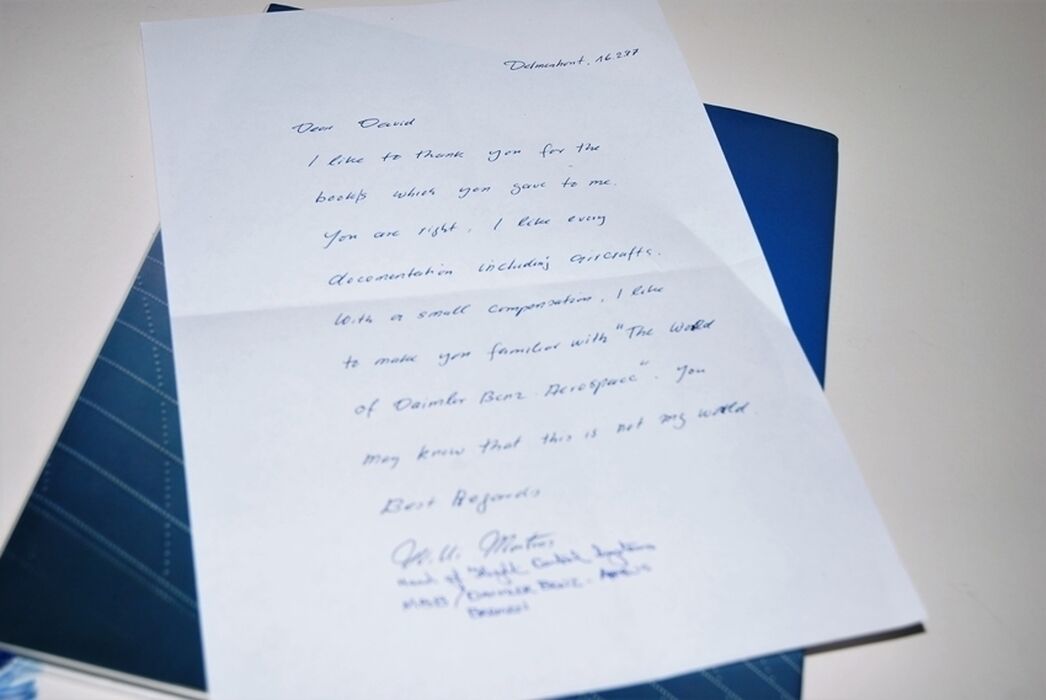 Delmenhorst, 16.2.97
Dear David
I like to thank you for the
books which you gave to me.
You are right, I like every
documentation including aircrafts.
With a small compensation, I like
to make you familiar with "The World
of Daimler Benz Aerospace". You
may know that this is not my world.
Best Regards
Martens
Head of Flight Control Systems
MBB / Daimler Benz
Bremen